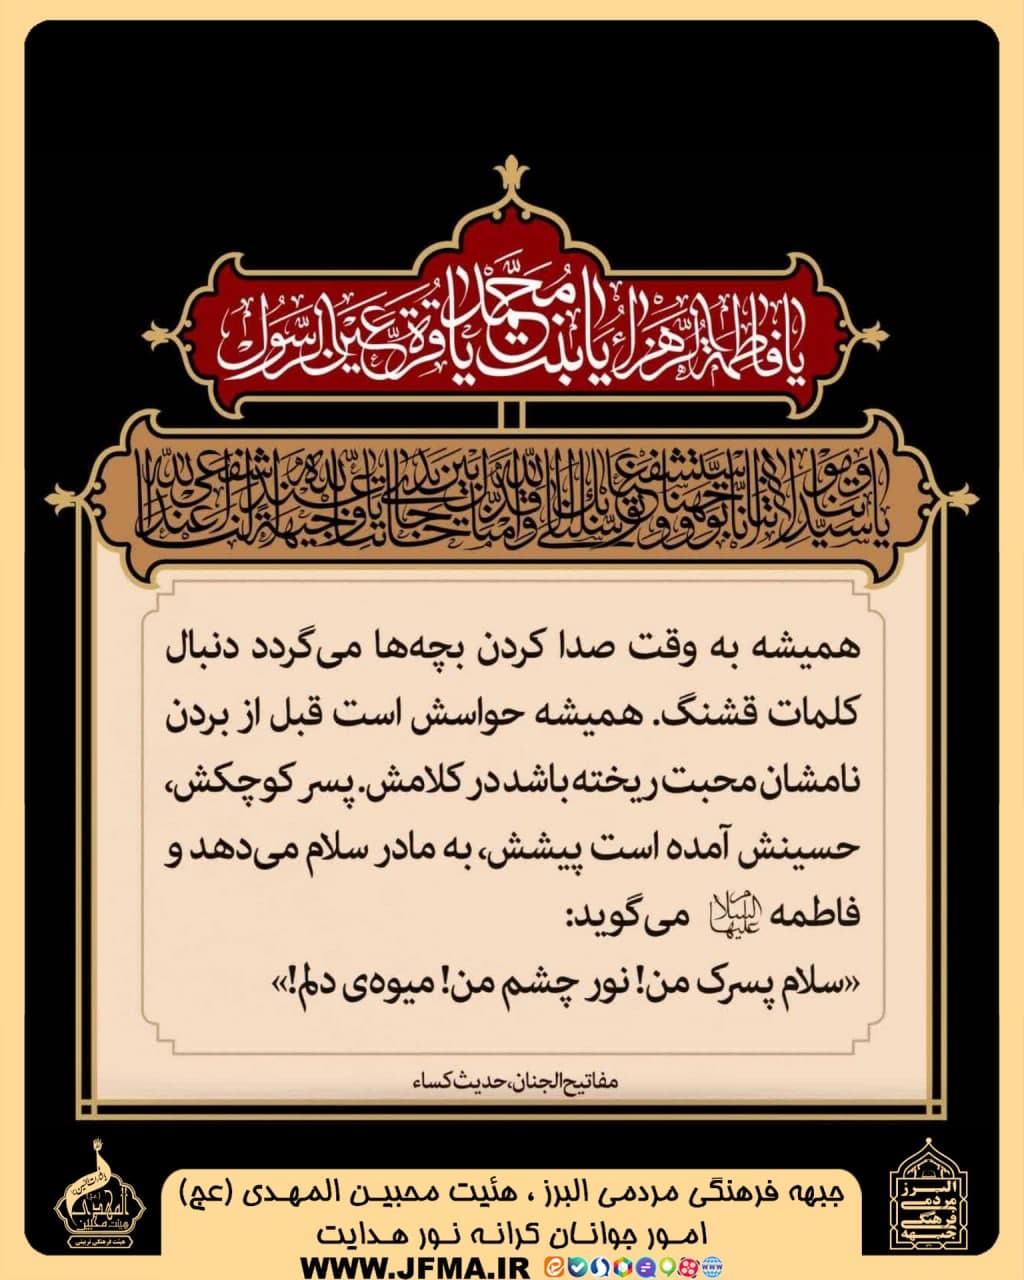 یا فاطمة الزهراء یا بنت محمد یا قرة عین الرسول
یا سیدتنا و مولاتنا انا توجهنا و استشفعنا و توسلنا بک الی الله و قدمناک بین یدی حاجاتنا یا وجیهة عند الله اشفعی لنا عند الله
همیشه به وقت صدا کردن بچه‌ها می‌گردد دنبال
کلمات قشنگ. همیشه حواسش است قبل از بردن
نامشان محبت ریخته باشد در کلامش. پسر کوچکش،
حسینش آمده است پیشش، به مادر سلام می‌دهد و
فاطمه علیها السلام می‌گوید:
«سلام پسرک من! نور چشم من! میوه‌ی دلم!»
مفاتیح‌الجنان، حدیث کساء
المهدی
هیئت محبین
هیئت فرهنگی تربیتی
البرز
مردمی
فرهنگی
جبهه
جبهه فرهنگی مردمی البرز ، هئیت محبین المهدی (عج)
امور جوانان کرانه نور هدایت
WWW.JFMA.IR